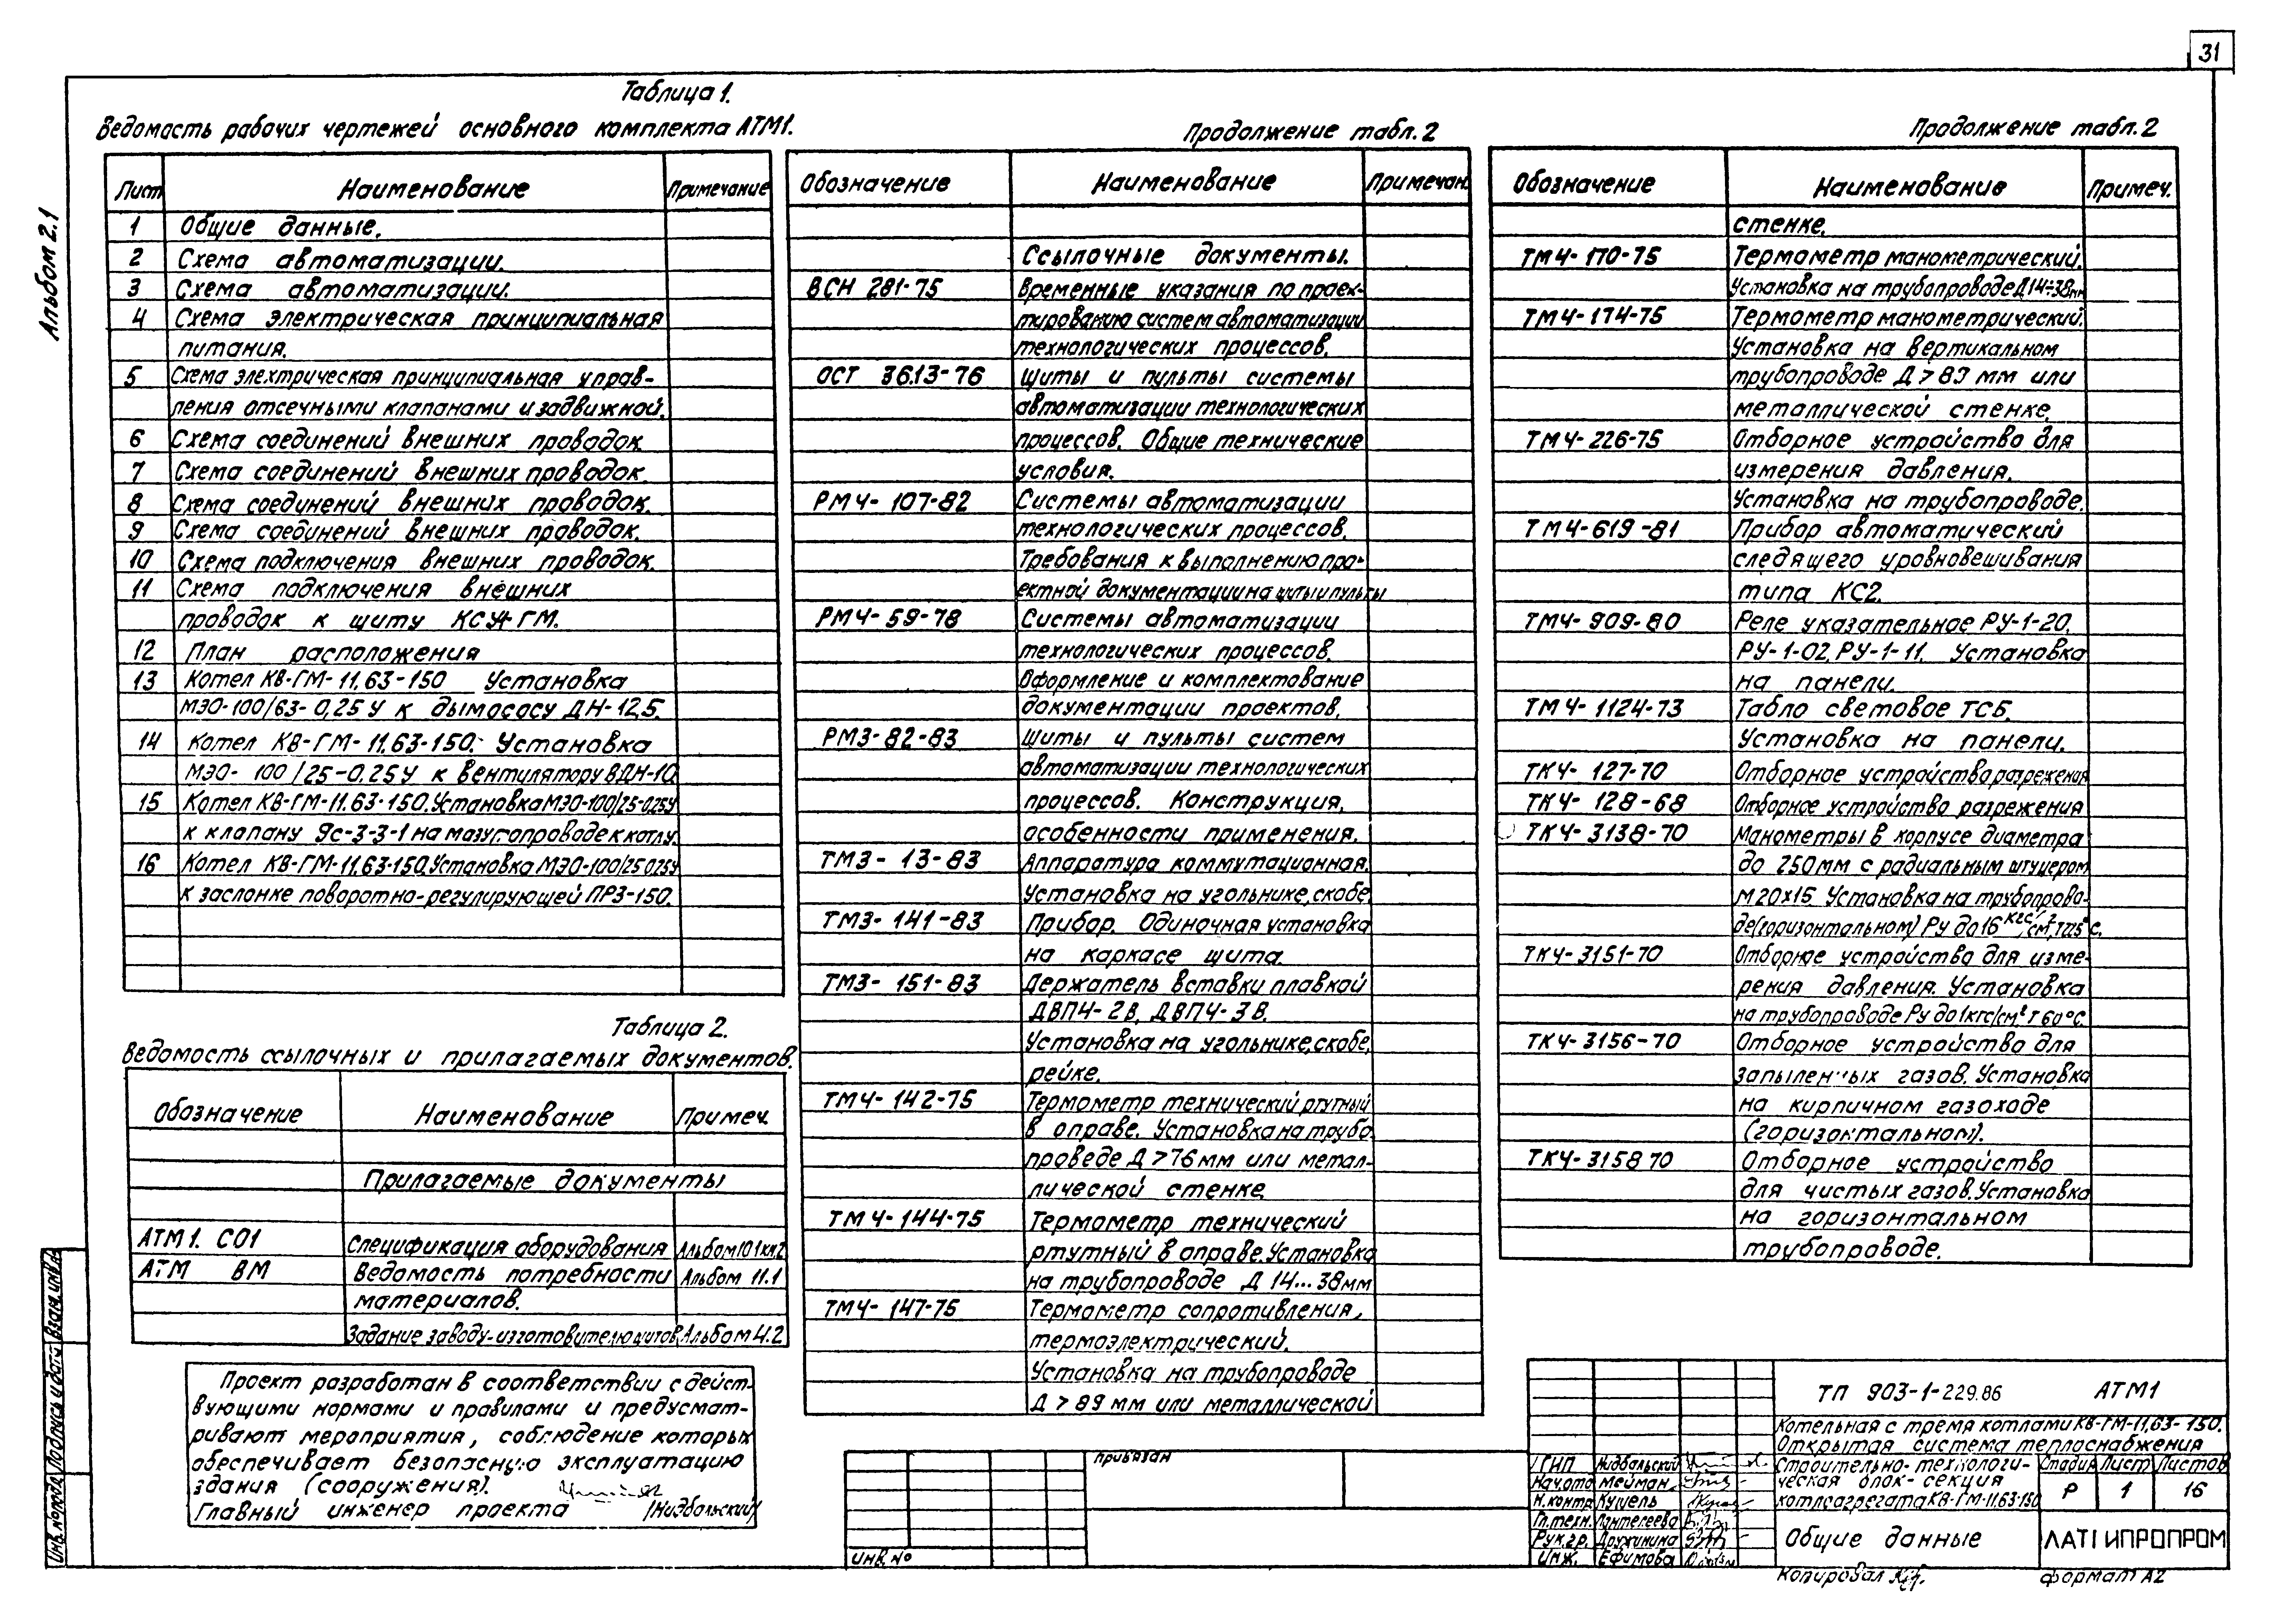 31
Альбом 2.1
Таблица 1.
Ведомасть рабочих чертежей основного комплекта АТМ1.
Лист Наименование Примечание
1 Общие данные.
2 Схема автоматизации.
3 Схема автоматизации.
4 Схема электрическая принципиальная
питания.
5 Схема электрическая принципиальная управ-
ления отсечными клапанами и задвижной.
6 Схема соединений внешних проводок.
7 Схема соединений внешних проводок.
8 Схема соединений внешних проводок.
9 Схема соединений внешних проводок.
10 Схема подключения внешних проводок.
11 Схема подключения внешних
проводок к щиту КСУ-ГМ.
12 План расположения
13 Котел КВ-ГМ-11,63-150 Установка
МЭО-100/63-0,25У к дымососу ДН-12,5.
14 Котел КВ-ГМ-11,63-150. Установка
МЭО-100/25-0,25У к вентилятору ВДН-10
15 Котел КВ-ГМ-11.63-150. Установка МЭО-100/25-0,25У
к клапану 9с-3-3-1 на мазутопроводе к котлу.
16 Котел КВ-ГМ-11,63-150. Установка МЭО-100/25 0,25У
к заслонке поворотно-регулирующей ПРЗ-150.
Таблица 2.
Ведомость ссылочных и прилагаемых документов.
Обозначение Наименование Примеч.
Прилагаемые документы
АТМ1. СО1 Спецификация оборудования Альбом 10.1 кн.2
АТМ ВМ Ведомость потребности Альбом 11.1
материалов.
Задание заводу-изготовителю щитов Альбом 4.2
Проект разработан в соответствии с дейст-
вующими нормами и правилами и предусмат-
ривают мероприятия, соблюдение которых
обеспечивает безопасную эксплуатацию
здания (сооружения).
Главный инженер проекта /Нидбальский/
Продолжение табл. 2
Обозначение Наименование Примечан.
Ссылочные документы.
ВСН 281-75 Временные указания по проек-
тированию систем автоматизации
технологических процессов.
ОСТ 36.13-76 Щиты и пульты системы
автоматизации технологических
процессов. Общие технические
условия.
РМ4-107-82 Системы автоматизации
технологических процессов.
Требования к выполнению про-
ектной документации на щиты и пульты
РМ4-59-78 Системы автоматизации
технологических процессов.
Оформление и комплектование
документации проектов.
РМ3-82-83 Щиты и пульты систем
автоматизации технологических
процессов. Конструкция,
особенности применения.
ТМ3-13-83 Аппаратура коммутационная.
Установка на угольнике, скобе
ТМ3-141-83 Прибор. Одиночная установка
на каркасе щита.
ТМ3-151-83 Держатель вставки плавкой
ДВП4-2В, ДВП4-3В.
Установка на угольнике, скобе,
рейке.
ТМ4-142-75 Термометр технический ртутный
в оправе. Установка на трубо-
проведе Д>76 мм или метал-
лической стенке
ТМ4-144-75 Термометр технический
ртутный в оправе. Установка
на трубопроводе Д 14...38мм
ТМ4-147-75 Термометр сопротивления,
термоэлектрический.
Установка на трубопроводе
Д > 89 мм или металлической
Продолжение табл. 2
Обозначение Наименование Примеч.
стенке.
ТМ4-170-75 Термометр манометрический.
Установка на трубопроводе Д14÷38мм
ТМ4-174-75 Термометр манометрический.
Установка на вертикальном
трубопроводе Д > 89 мм или
металлической стенке.
ТМ4-226-75 Отборное устройство для
измерения давления.
Установка на трубопроводе.
ТМ4-619-81 Прибор автоматический
следящего уровновешивания
типа КС2.
ТМ4-909-80 Реле указательное РУ-1-20,
РУ-1-02, РУ-1-11. Установка
на панели.
ТМ4-1124-73 Табло световое ТСБ.
Установка на панели.
ТК4-127-70 Отборное устройство разрежения
ТК4-128-68 Отборное устройство разрежения
ТК4-3138-70 Манометры в корпусе диаметра
до 250мм с радиальным штуцером
М20х15 Установка на трубопрово-
де(горизонтальном) Ру до 16 кгс/см², Т 225°С.
ТК4-3151-70 Отборное устройство для изме-
рения давления. Установка
на трубопроводе Ру до 1кгс/см² Т 60°С.
ТК4-3156-70 Отборное устройство для
запыленных газов. Установка
на кирпичном газоходе
(горизонтальном).
ТК4-3158 70 Отборное устройство
для чистых газов. Установка
на горизонтальном
трубопроводе.
Инв.№подл. Подпись и дата Взам.инв.№
привязан
инв. №
ТП 903-1-229.86 АТМ1
Котельная с тремя котлами КВ-ГМ-11,63-150.
Открытая система теплоснабжения
ГИП Нидбальский
Нач.отд Мейман
Н.контр Кушель
Гл.техн. Пантелеева
Рук.гр. Дружинина
Инж. Ефимова
Строительно-технологи-
ческая блок-секция
котлоагрегата КВ-ГМ-11,63-150
Стадия Лист Листов
Р 1 16
Общие данные
ЛАТГИПРОПРОМ
Копировал
формат А2